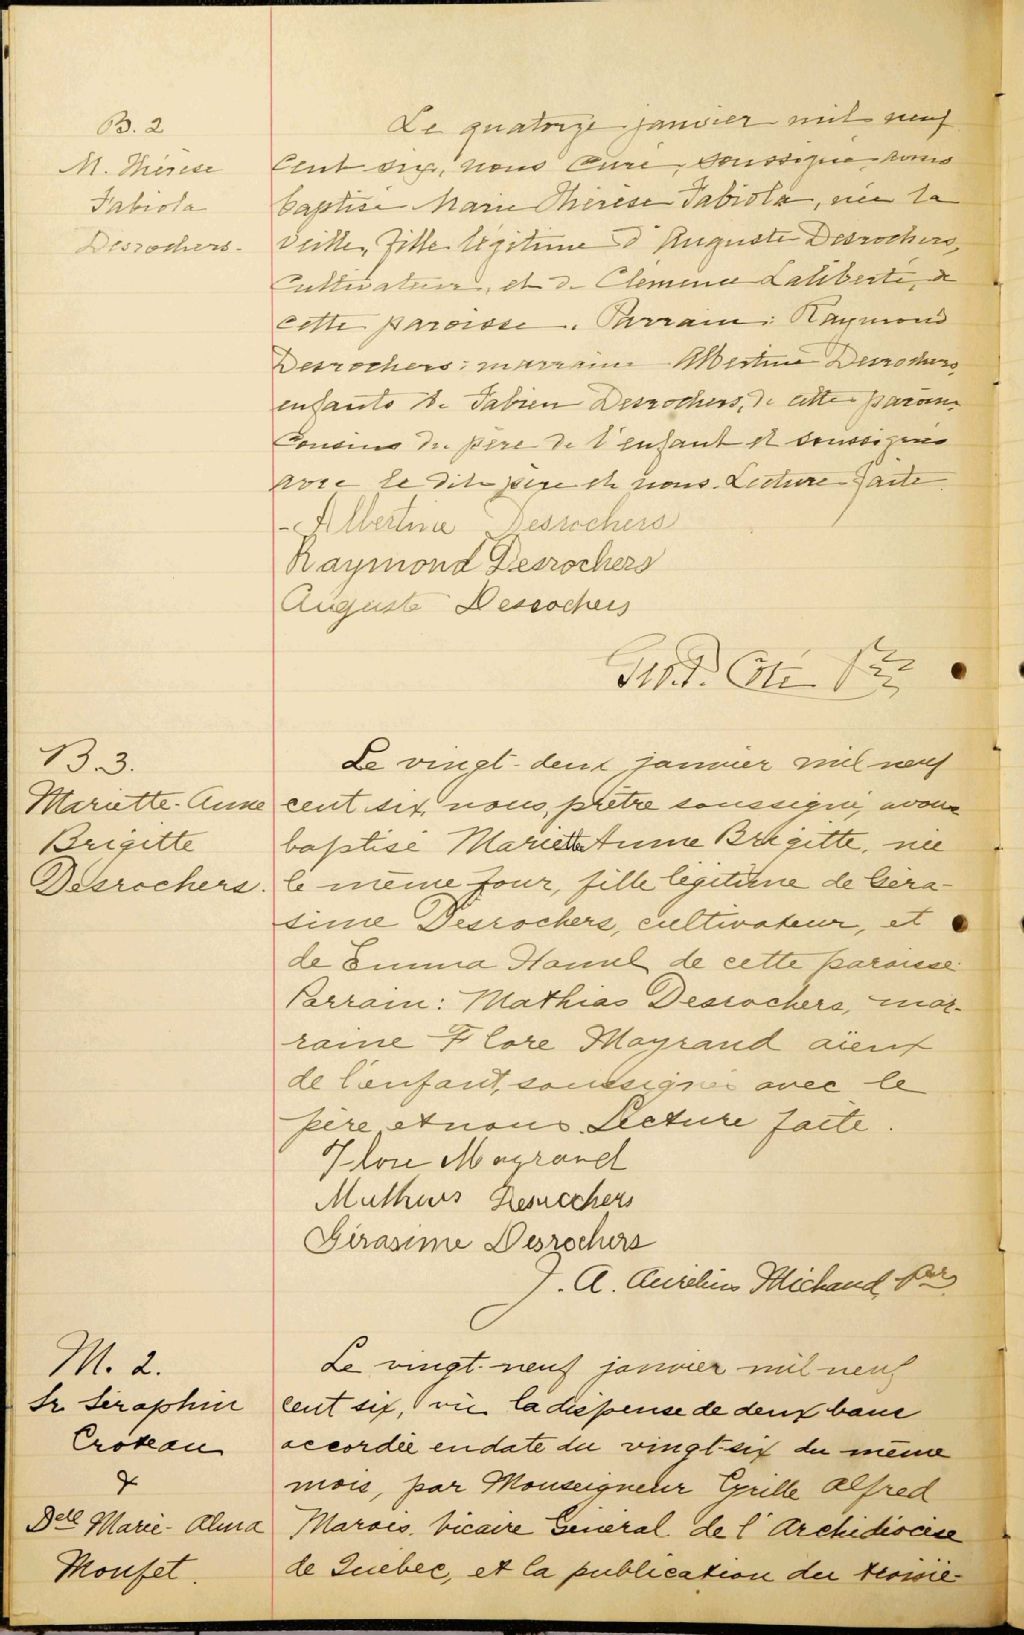 B. 2
M. Thérèse
Fabiola
Desrochers.
Le quatorze janvier mil neuf
cent six, nous Curé, soussigné avons
baptisé Marie Thérèse Fabiola, née la
veille, fille légitime d'Auguste Desrochers,
cultivateur, et de Clémence Laliberté, de
cette paroisse. Parrain: Raymond
Desrochers: marraine Albertine Desrochers,
enfants de Fabien Desrochers, de cette paroisse,
Cousins du père de l'enfant et soussignés
avec le dit père et nous. Lecture faite
Albertine Desrochers
Raymond Desrochers
Auguste Desrochers
Geo. P. Côté Ptre
B. 3.
Mariette-Anne
Brigitte
Desrochers.
Le vingt-deux janvier mil neuf
cent six, nous, prêtre soussigné, avons
baptisé Mariette Anne Brigitte, née
le même jour, fille légitime de Géra-
sime Desrochers, cultivateur, et
de Emma Hamel de cette paroisse.
Parrain: Mathias Desrochers, mar-
raine Flore Mayrand aïeux
de l'enfant, soussignés avec le
père et nous. Lecture faite.
Flore Mayrand
Mathias Desrochers
Gérasime Desrochers
J. A. Aurélius Michaud, Ptre
M. 2.
Sr Séraphin
Croteau
&
Delle Marie-Alma
Monfet.
Le vingt-neuf janvier mil neuf
cent six, vu la dispense de deux bans
accordée en date du vingt-six du même
mois, par Monseigneur Cyrille Alfred
Marois, Vicaire Général de l'Archidiocèse
de Québec, et la publication du troisiè-